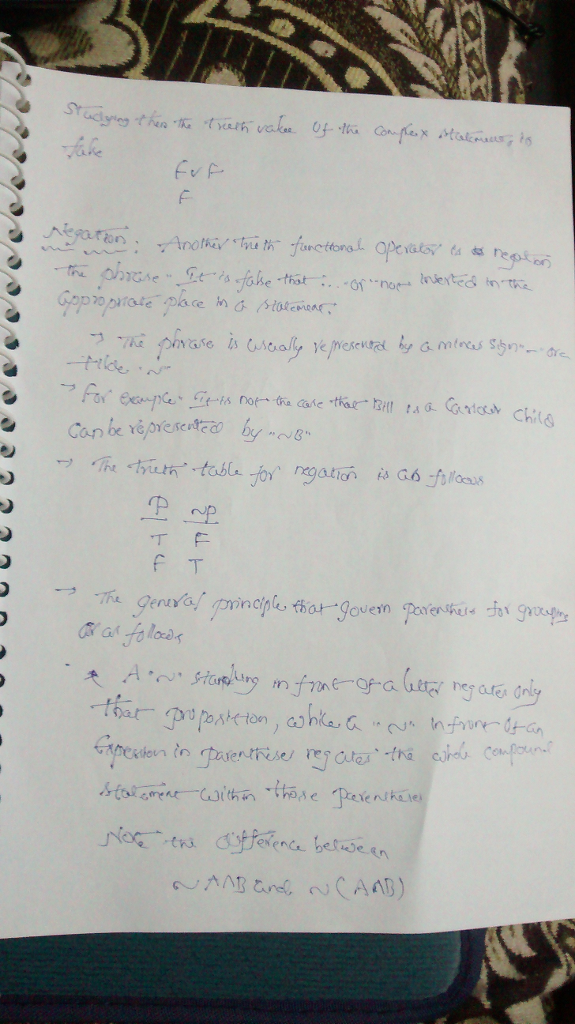 Studying then the truth value of the complex statement, is
false
F v F
F
Negation: Another truth functional operator is negation
the phrase "It is false that ... or "not inserted in the
appropriate place in a statement.
→ The phrase is usually represented by a minus sign "-" or a
tilde "~"
→ For example "It is not the case that Bill is a Curious Child
Can be represented by "~B"
→ The truth table for negation is as follows
P ~P
T F
F T
→ The general principle that govern parenthesis for grouping
as follows
* A "~" standing in front of a letter negates only
that proposition, while a "~" in front of an
Expression in parentheses negates the whole compound
statement within those parentheses
Note the difference between
~A∧B and ~(A∧B)